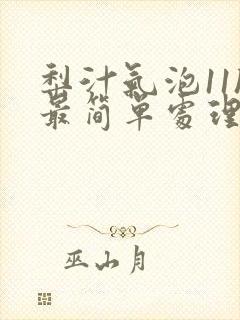 梨汁氣泡11
最簡單處理
巫山月